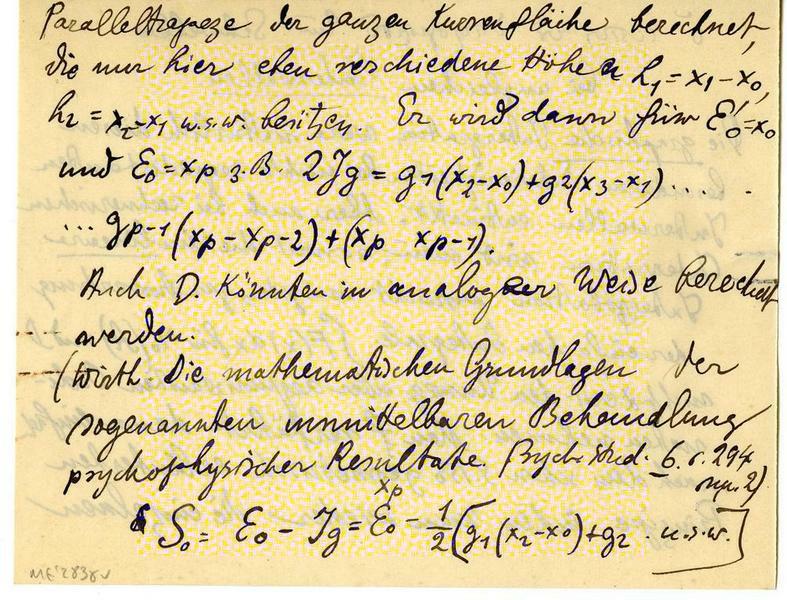 Paralleltrapeze der ganzen Kurvenfläche berechnet,
die nur hier eben verschiedene Höhen h₁ = x₁ – x₀,
h₂ = x₂ – x₁ u.s.w. besitzen. Er wird dann für E₀' = x₀
und E₀ = xp z.B. 2Jg = g₁(x₂–x₀) + g₂(x₃–x₁)....
... gp–1(xp – xp–2) + (xp xp–1).
Auch D. könnten in analoger Weise berechnet
werden.
(Wirth. Die mathematischen Grundlagen der
sogenannten unmittelbaren Behandlung
psychophysischer Resultate. Psych. Stud. 6. s. 294
xp
S₀ = E₀ – Jg = E₀ – 1/2 (g₁(x₂–x₀) + g₂ . u.s.w.